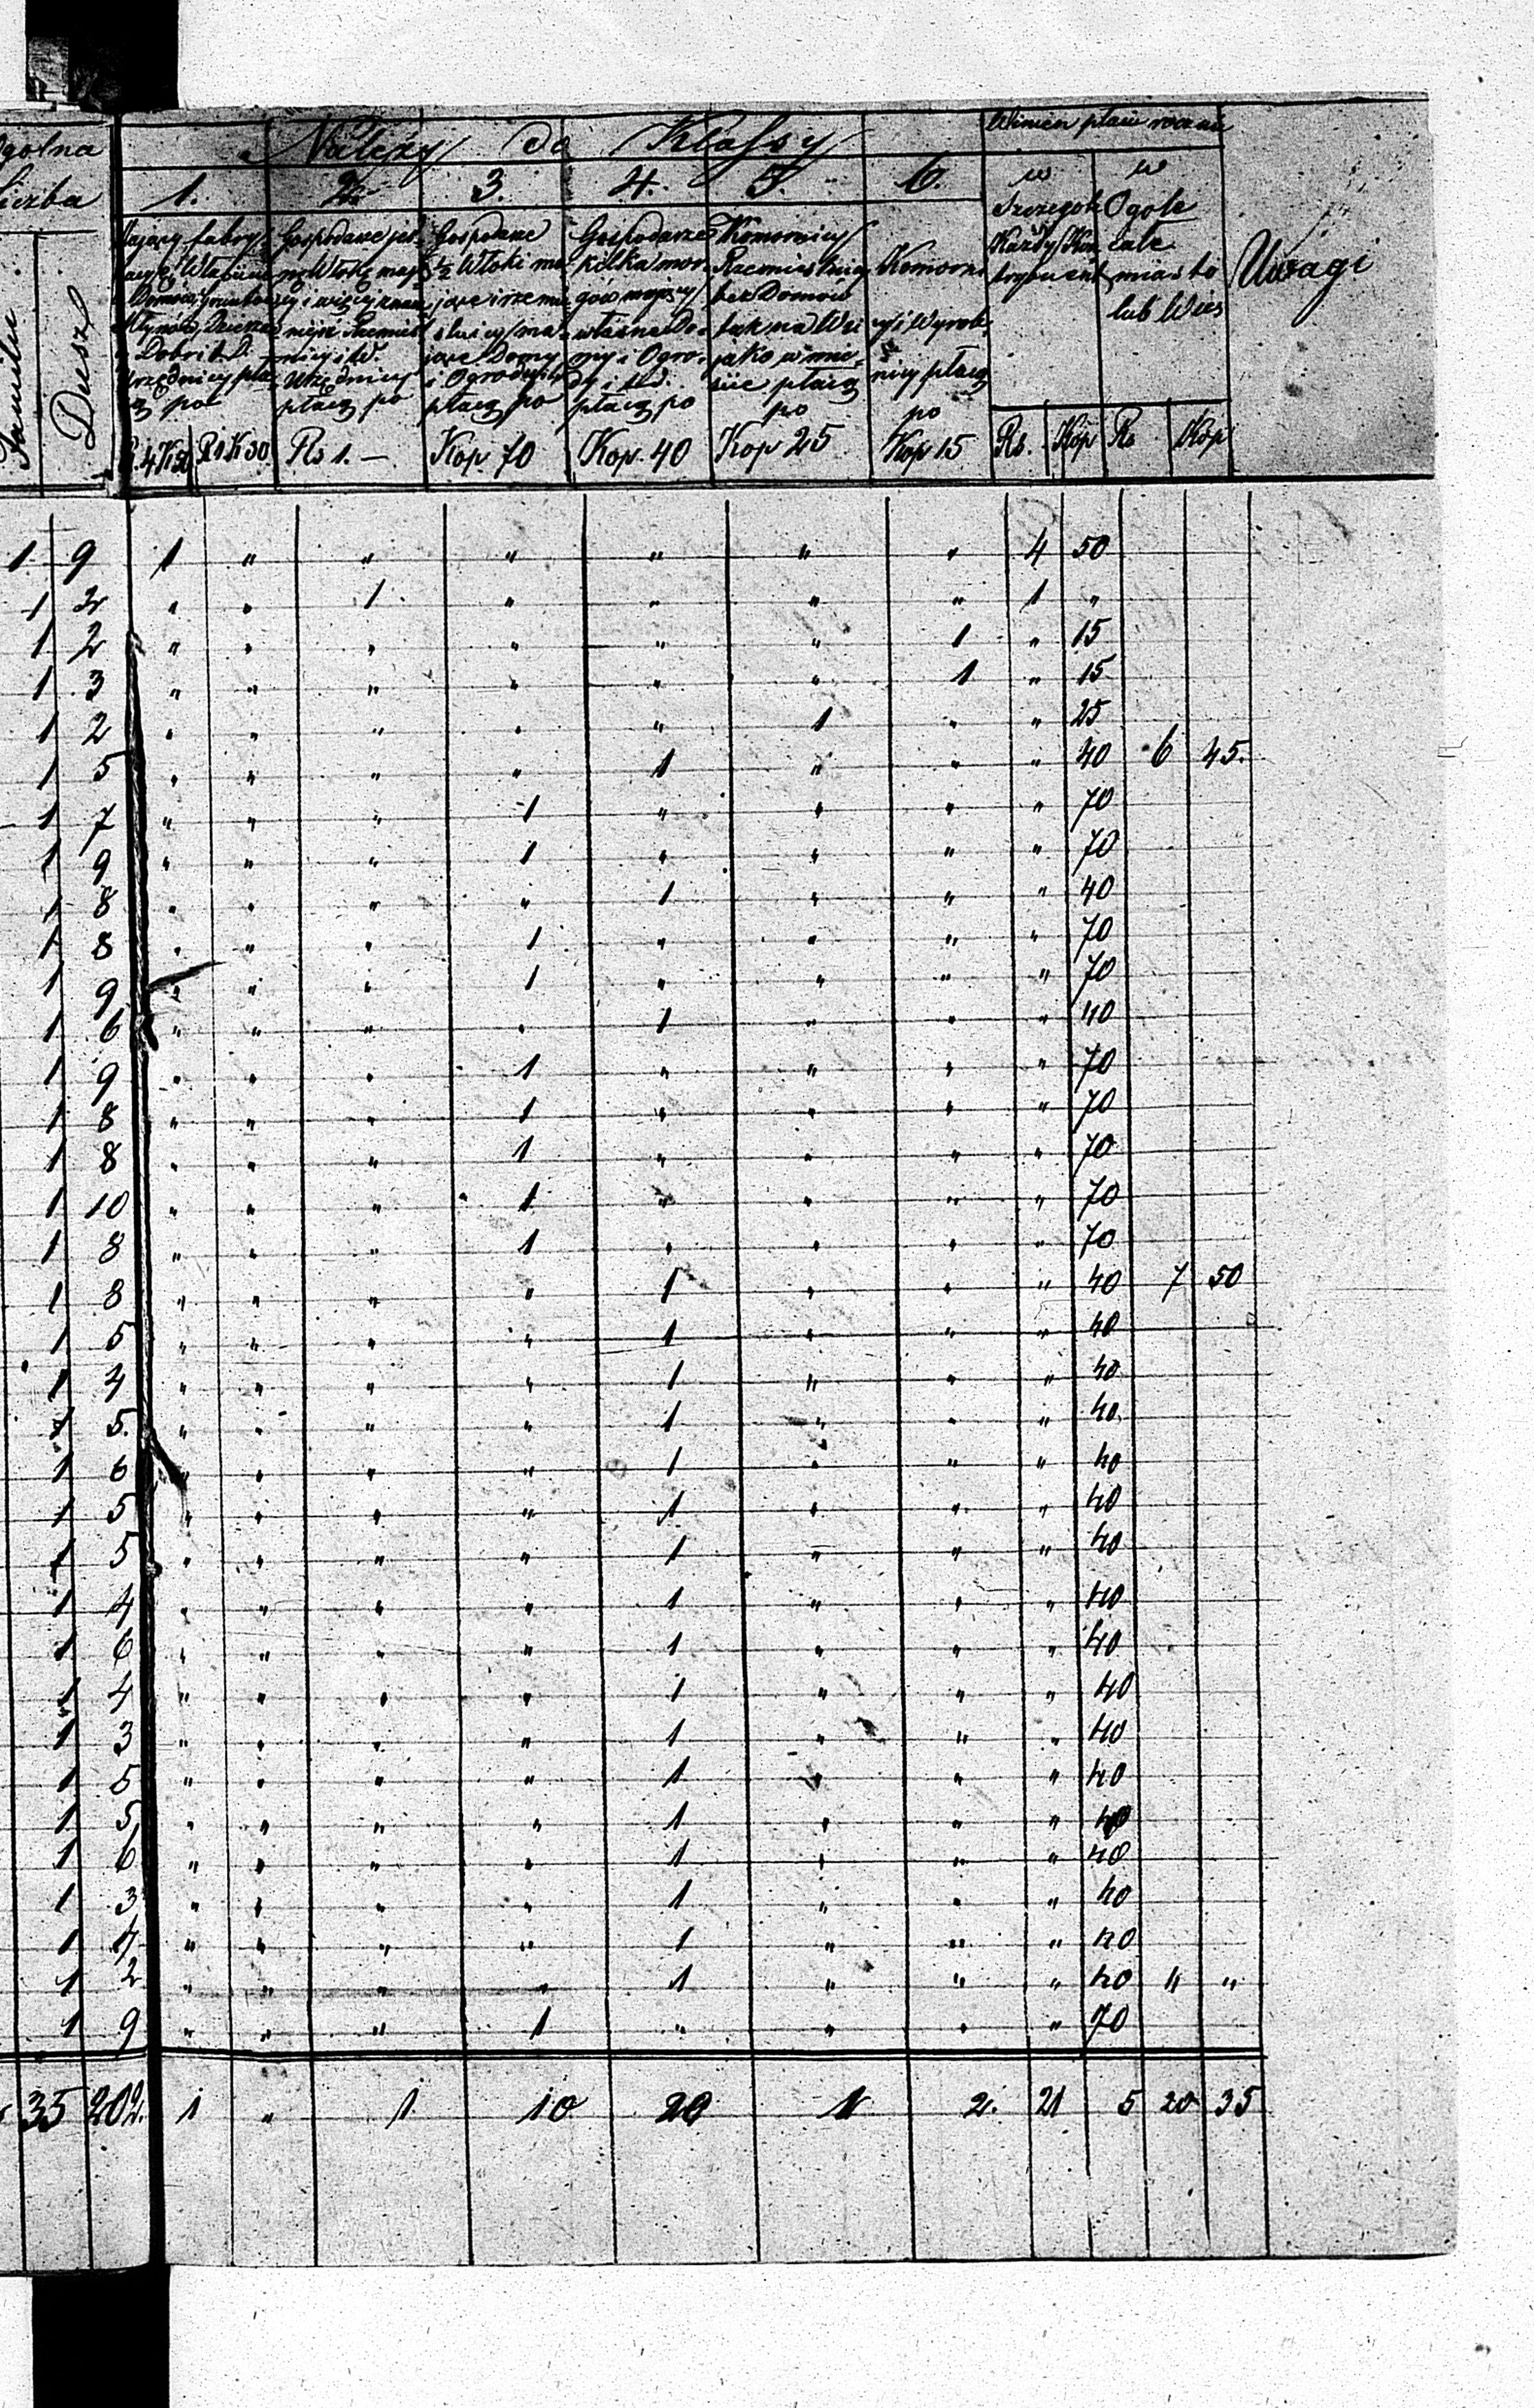 Ogolna Liczba
Familii | Dusz
Należy do Klassy
1. | 2. | 3. | 4. | 5. | 6.
Winien płacić rocznie
Gospodarze
½ Włoki ma-
jące i rzemie-
ślnicy ma-
jące Domy
i Ogrody
płacą po
Gospodarze
kilka mor-
gów mający
własne Do-
my i Ogro-
dy i t.d.
płacą po
Komornicy
Rzemieślnicy
bez Domów
tak na Wsi
jako w mie-
ście płacą
po
Komorni-
cy i Wyrob-
nicy płacą
po
w Szczególe Każdy Kon-
trybuent
w Ogóle
całe
miasto
lub Wieś
Uwagi
R. 4 K 50 | Rs K 50 | Rs 1. — | Kop 70 | Kop. 40 | Kop 25 | Kop 15 | Rs. | Kop | Rs | Kop
1 9 1 " " " " " " 4 50
1 2 " " 1 " " " " 1 "
1 2 " " " " " " 1 " 15
1 3 " " " " " " 1 " 15
1 2 " " " " " 1 " " 25
1 5 " " " " 1 " " " 40 6 45.
1 7 " " " 1 " " " " 70
1 9 " " " 1 " " " " 70
1 8 " " " " 1 " " " 40
1 8 " " " 1 " " " " 70
1 9 " " " 1 " " " " 70
1 6 " " " " 1 " " " 40
1 9 " " " 1 " " " " 70
1 8 " " " 1 " " " " 70
1 8 " " " 1 " " " " 70
1 10 " " " 1 " " " " 70
1 8 " " " 1 " " " " 70
1 8 " " " " 1 " " " 40 7 50
1 5 " " " " 1 " " " 40
1 4 " " " " 1 " " " 40
1 5. " " " " 1 " " " 40
1 6 " " " " 1 " " " 40
1 5 " " " " 1 " " " 40
1 5 " " " " 1 " " " 40
1 4 " " " " 1 " " " 40
1 6 " " " " 1 " " " 40
1 4 " " " " 1 " " " 40
1 3 " " " " 1 " " " 40
1 5 " " " " 1 " " " 40
1 5 " " " " 1 " " " 40
1 6 " " " " 1 " " " 40
1 3 " " " " 1 " " " 40
1 4 " " " " 1 " " " 40
1 2 " " " " 1 " " " 40 " "
1 9 " " " 1 " " " " 70
35 202. 1 " 1 10 20 1 2. 21 5 20 35